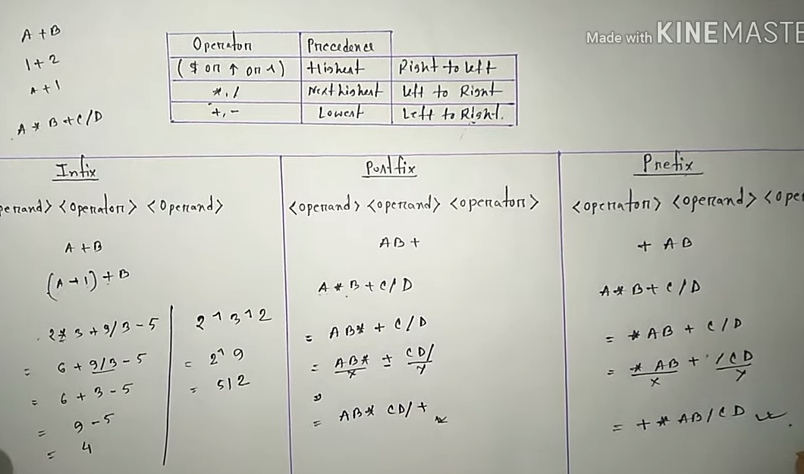 Made with KINEMASTE
A + B
1 + 2
A + 1
A * B + C / D
Operator Precedence
($ or ↑ or ^) Highest Right to left
*, / Next highest Left to Right
+, - Lowest Left to Right.
Infix
<Operator> <Operand>
A + B
(A + 1) + B
2 * 3 + 9/3 - 5
= 6 + 9/3 - 5
= 6 + 3 - 5
= 9 - 5
= 4
2 ^ 3 ^ 2
= 2 ^ 9
= 512
Postfix
<operand> <operand> <operator>
AB +
A * B + C / D
= AB* + C / D
= AB* + CD/
X Y
= AB* CD/ +
Prefix
<operator> <operand> <ope
+ AB
A * B + C / D
= *AB + C / D
= * AB + / CD
X Y
= + * AB / CD